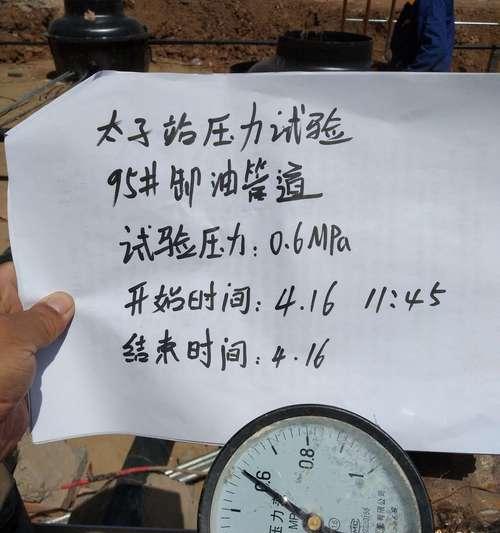 太子站压力试验
95#卸油管道
试验压力：0.6MPa
开始时间：4.16 11:45
结束时间：4.16
0.6
0.8
1
压力
MP